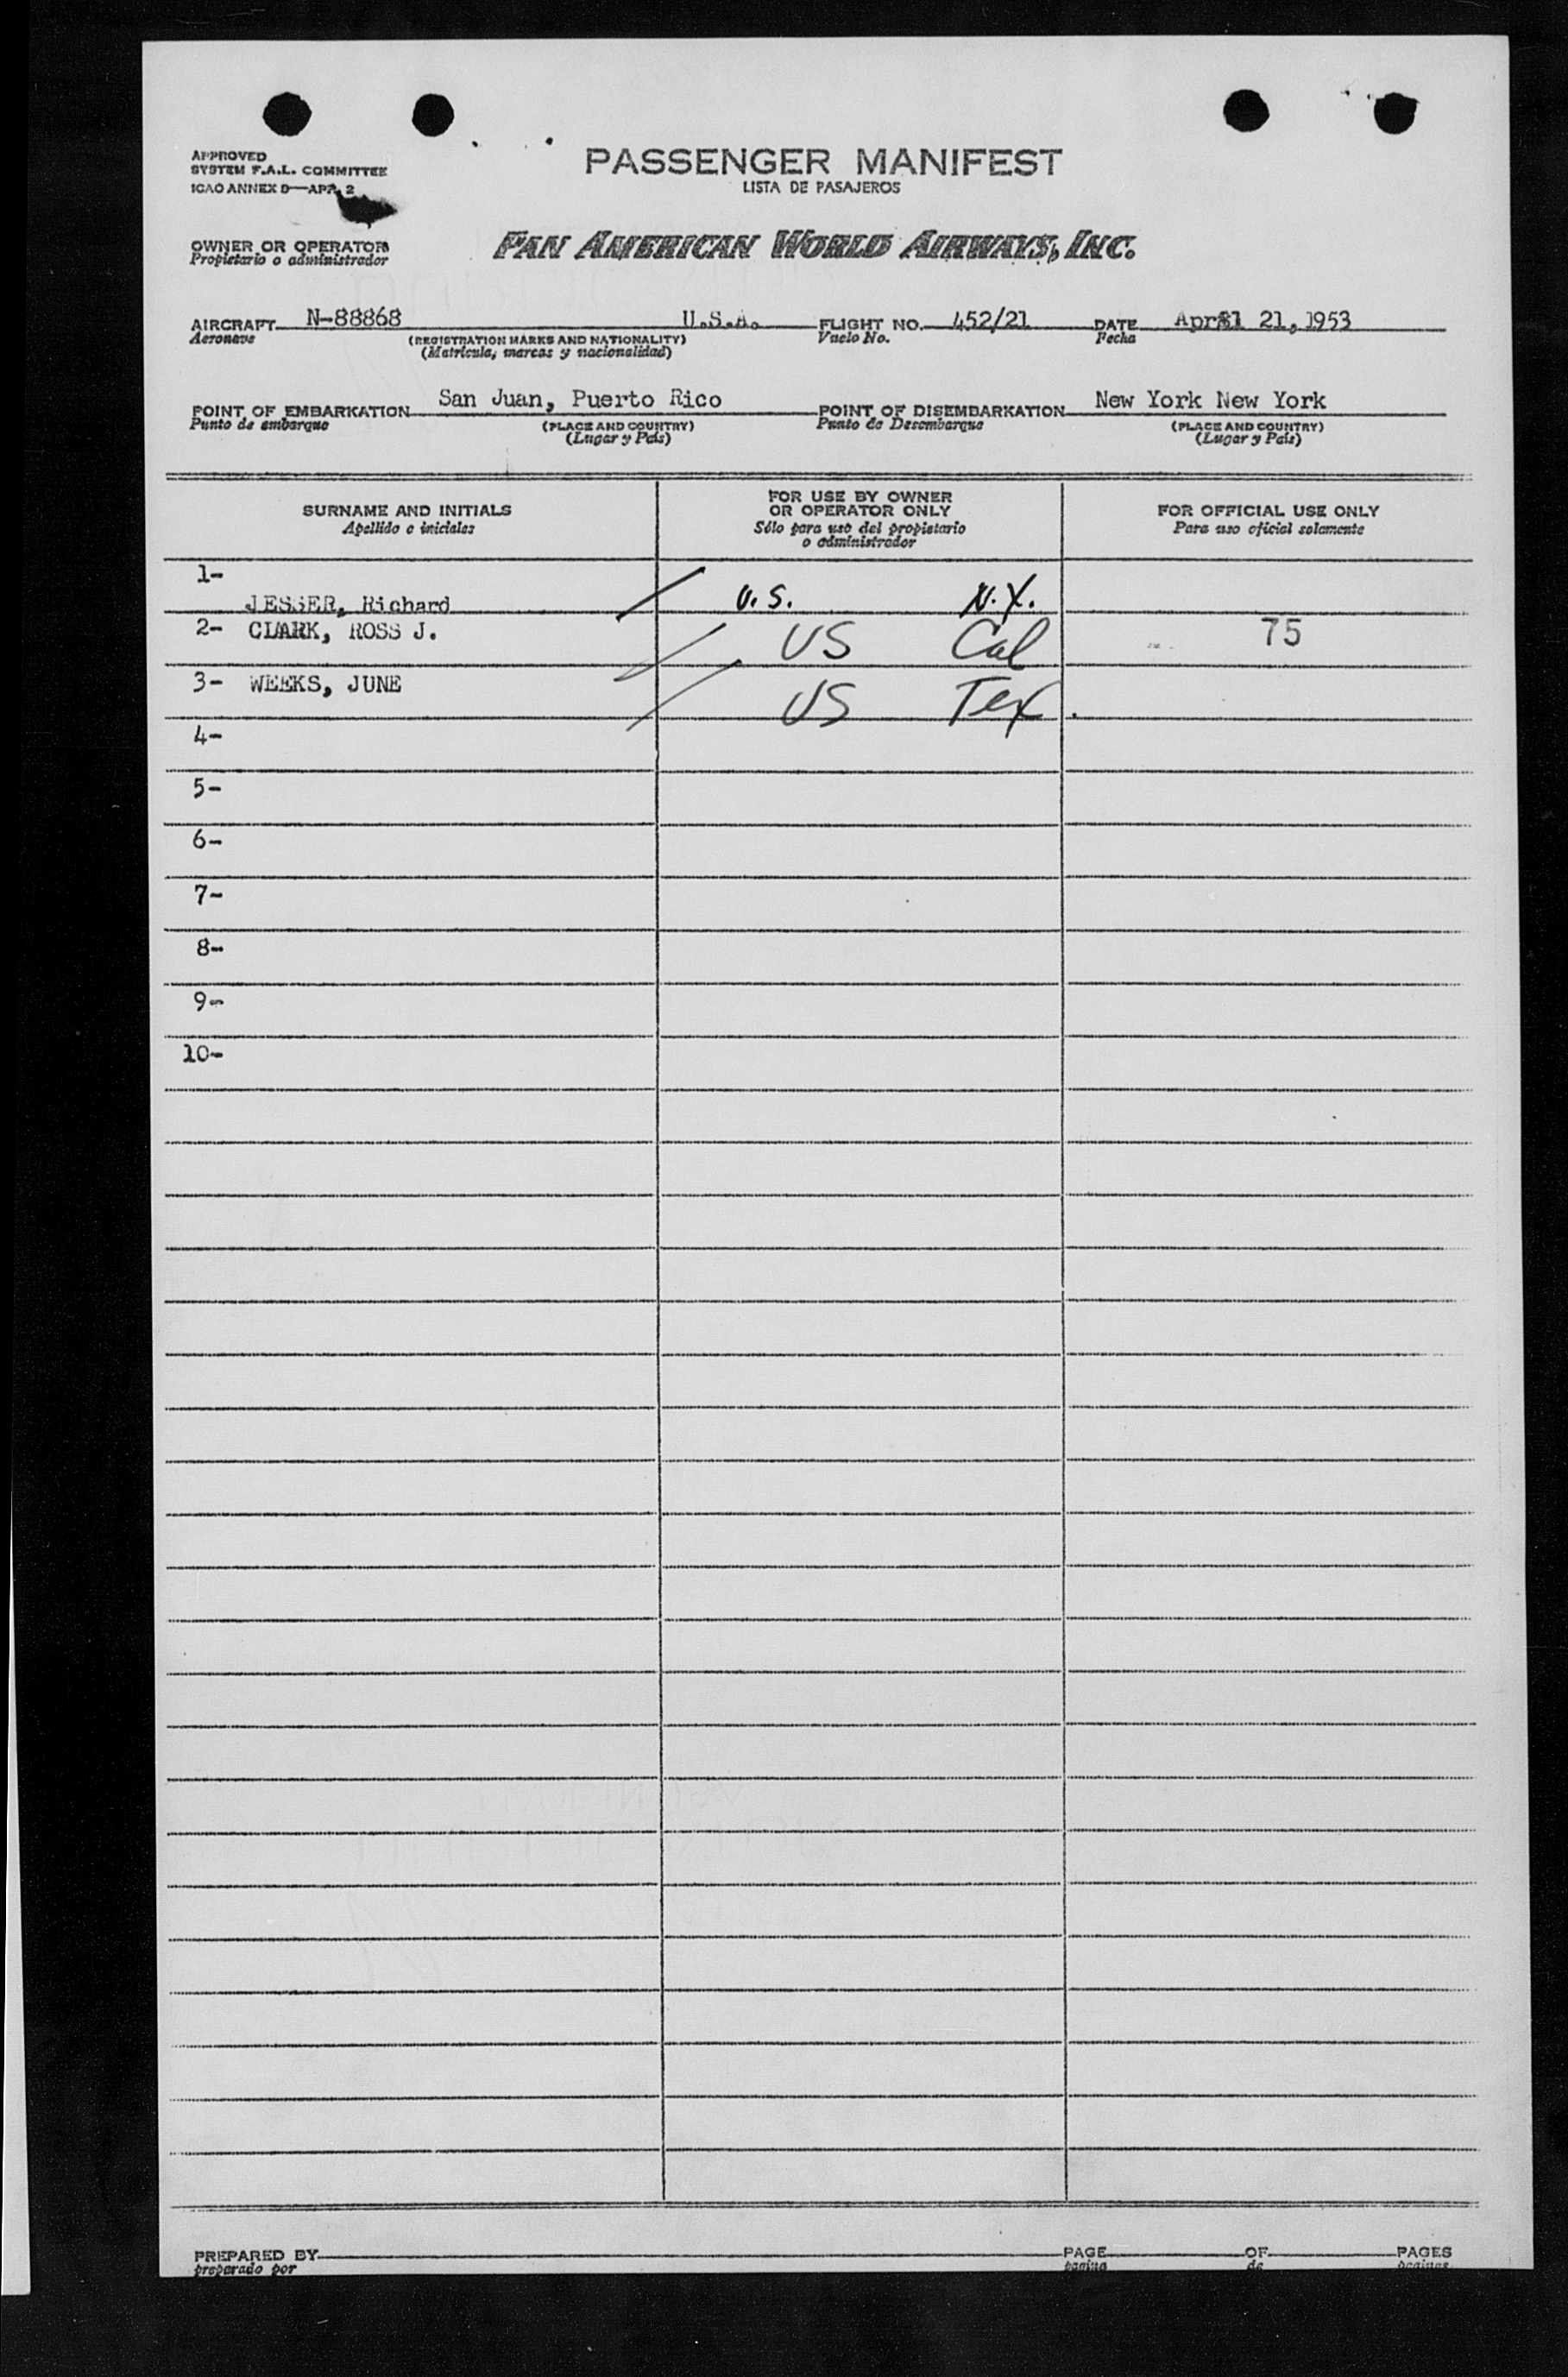 APPROVED
SYSTEM F.A.L. COMMITTEE
ICAO ANNEX 9—APP. 2
PASSENGER MANIFEST
LISTA DE PASAJEROS
OWNER OR OPERATOR
Propietario o administrador
PAN AMERICAN WORLD AIRWAYS, INC.
AIRCRAFT N-88868 U.S.A. FLIGHT NO. 452/21 DATE April 21, 1953
Aeronave (REGISTRATION MARKS AND NATIONALITY) Vuelo No. Fecha
(Matricula, marcas y nacionalidad)
POINT OF EMBARKATION San Juan, Puerto Rico POINT OF DISEMBARKATION New York New York
Punto de embarque (PLACE AND COUNTRY) Punto de Desembarque (PLACE AND COUNTRY)
(Lugar y País) (Lugar y País)
SURNAME AND INITIALS
Apellido e iniciales
FOR USE BY OWNER
OR OPERATOR ONLY
Sólo para uso del propietario
o administrador
FOR OFFICIAL USE ONLY
Para uso oficial solamente
1-
JESSER, Richard U.S. N.Y.
2- CLARK, ROSS J. US Cal 75
3- WEEKS, JUNE US Tex.
4-
5-
6-
7-
8-
9-
10-
PREPARED BY PAGE OF PAGES
preparado por pagina de paginas